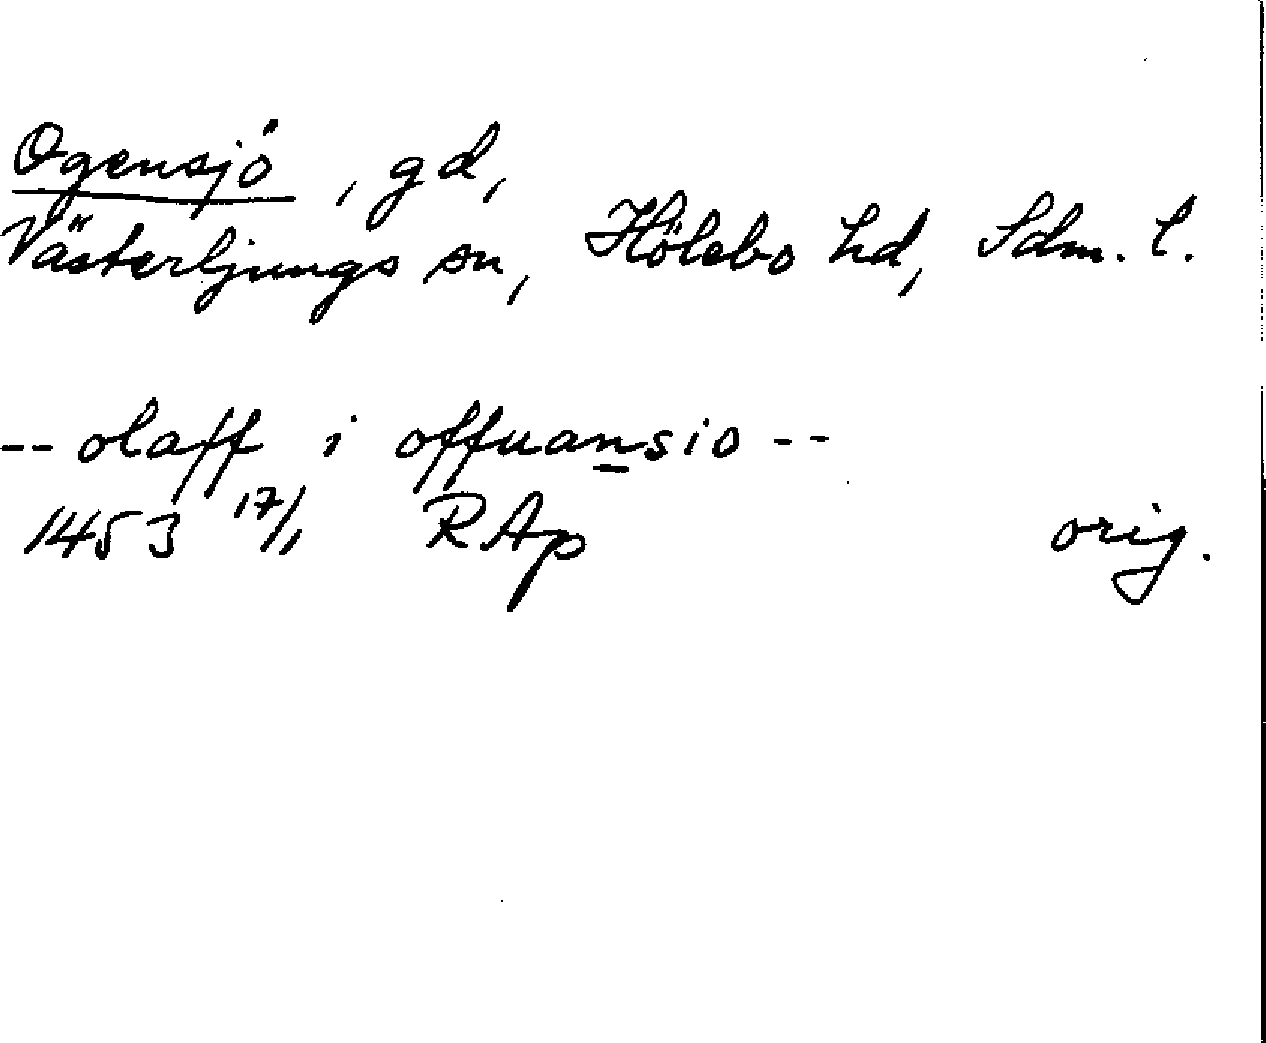 Ogensjö, gd,
Västerljungs sn, Hölebo hd, Sdm. l.
-- olaff i offuansio --
1453 17/1 RAp orig.